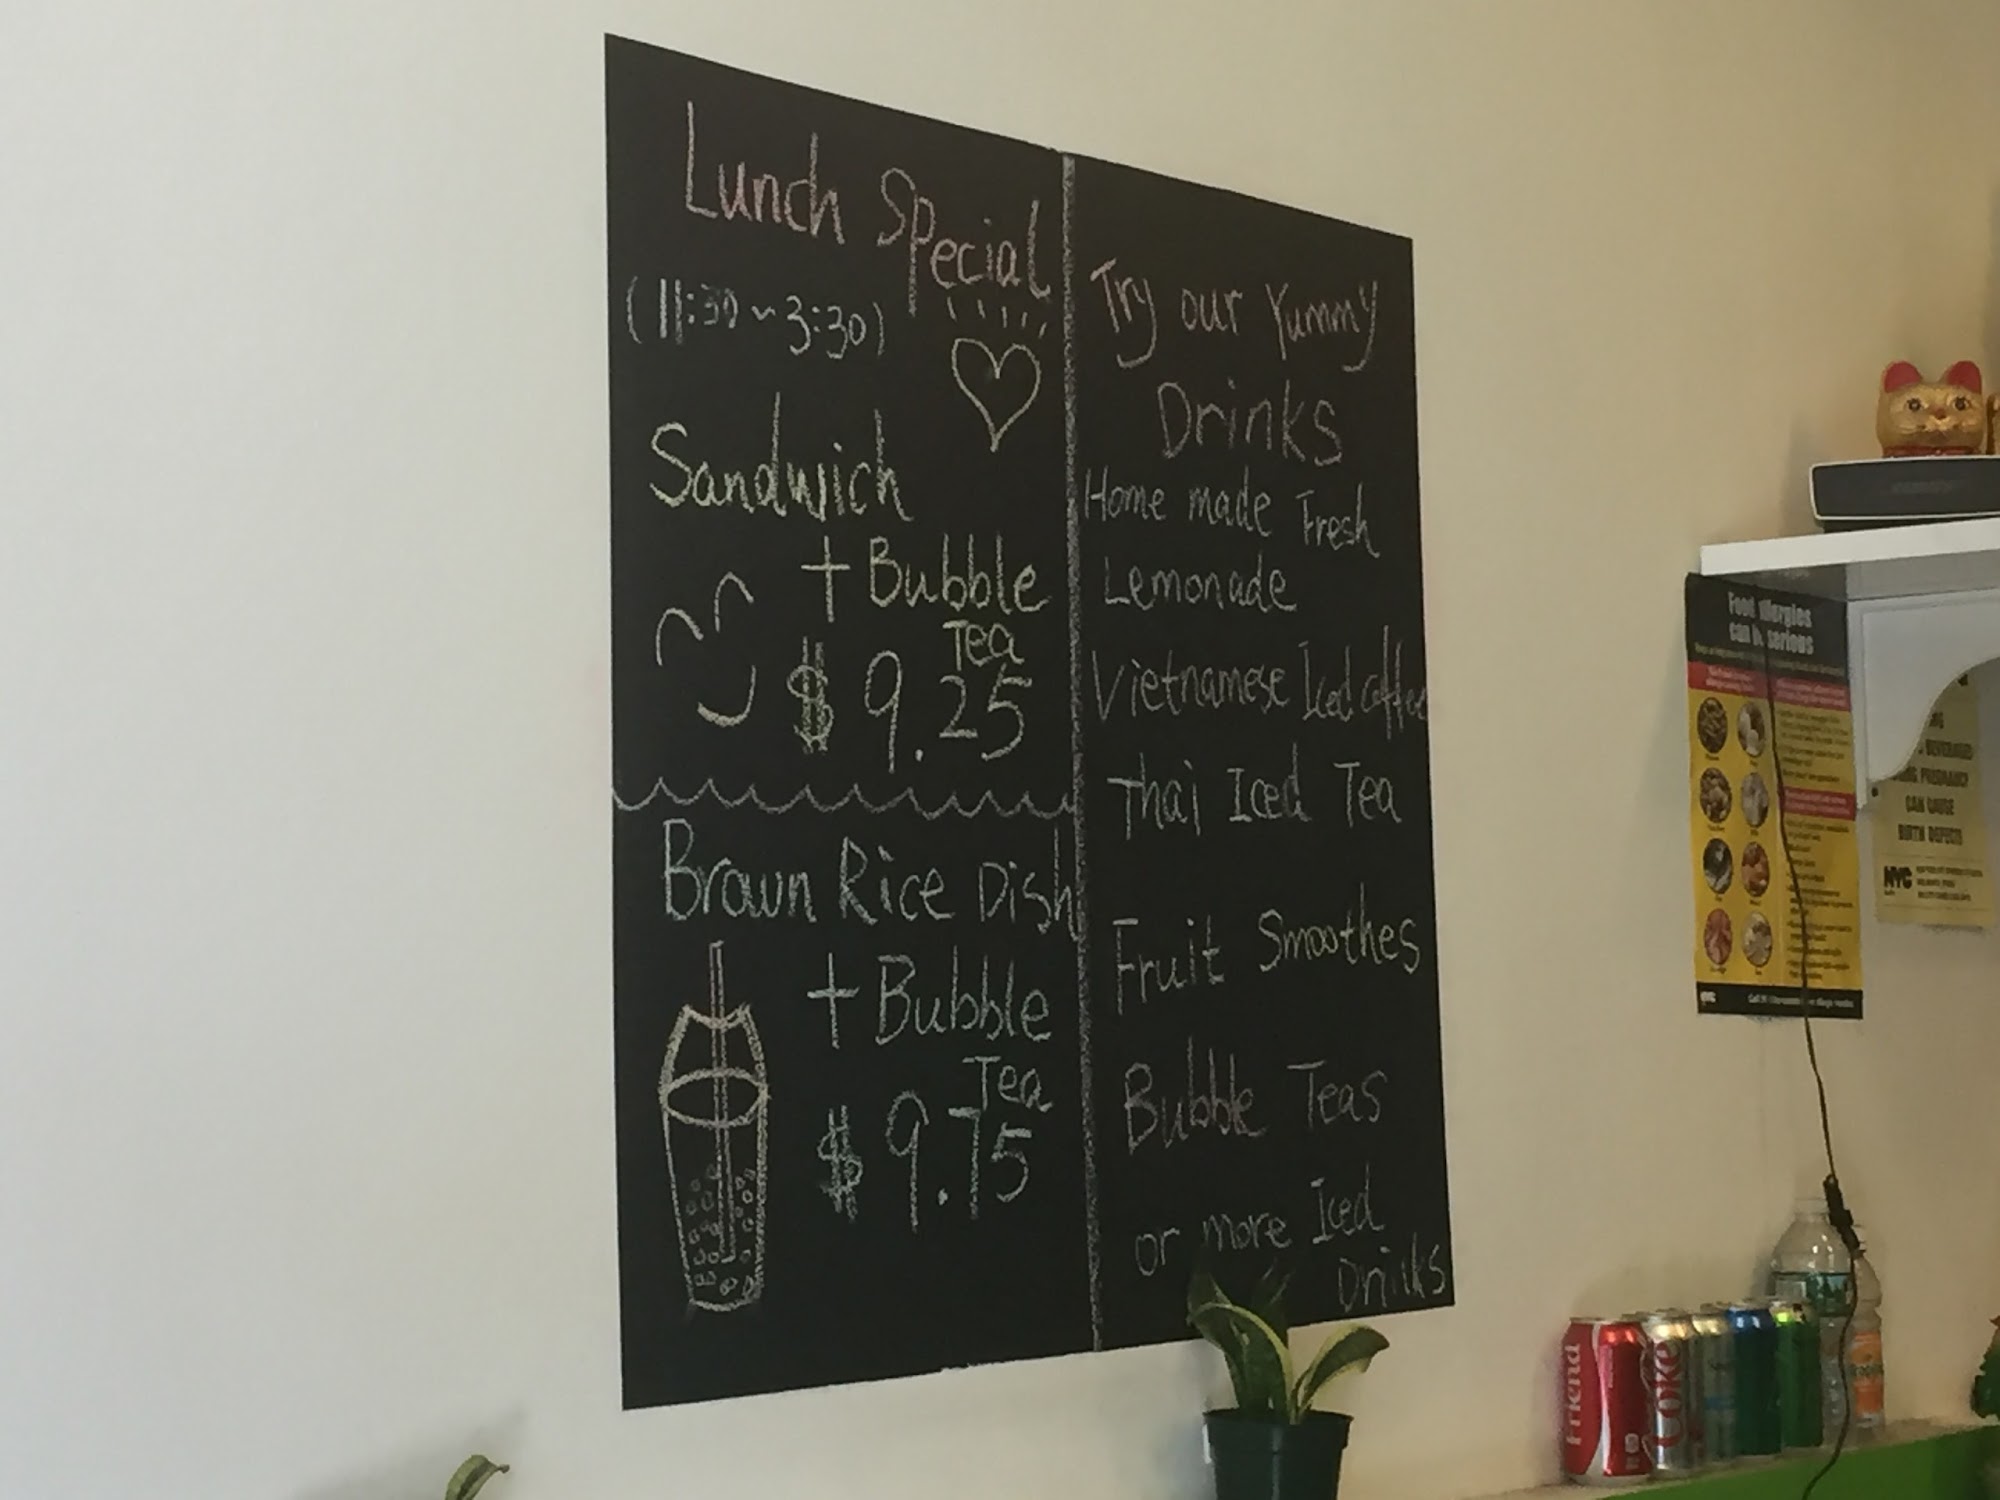 Lunch Special
(11:30 ~ 3:30)
Sandwich
+ Bubble
Tea
$ 9.25
Brown Rice Dish
+ Bubble
Tea
$ 9.75
Try our Yummy
Drinks
Home made Fresh
Lemonade
Vietnamese Iced coffee
Thai Iced Tea
Fruit Smoothes
Bubble Teas
or more Iced
Drinks
Food Allergies
can be serious
BEVERAGES
PREGNANCY
CAN CAUSE
BIRTH DEFECTS
NYC
Friend
Coke